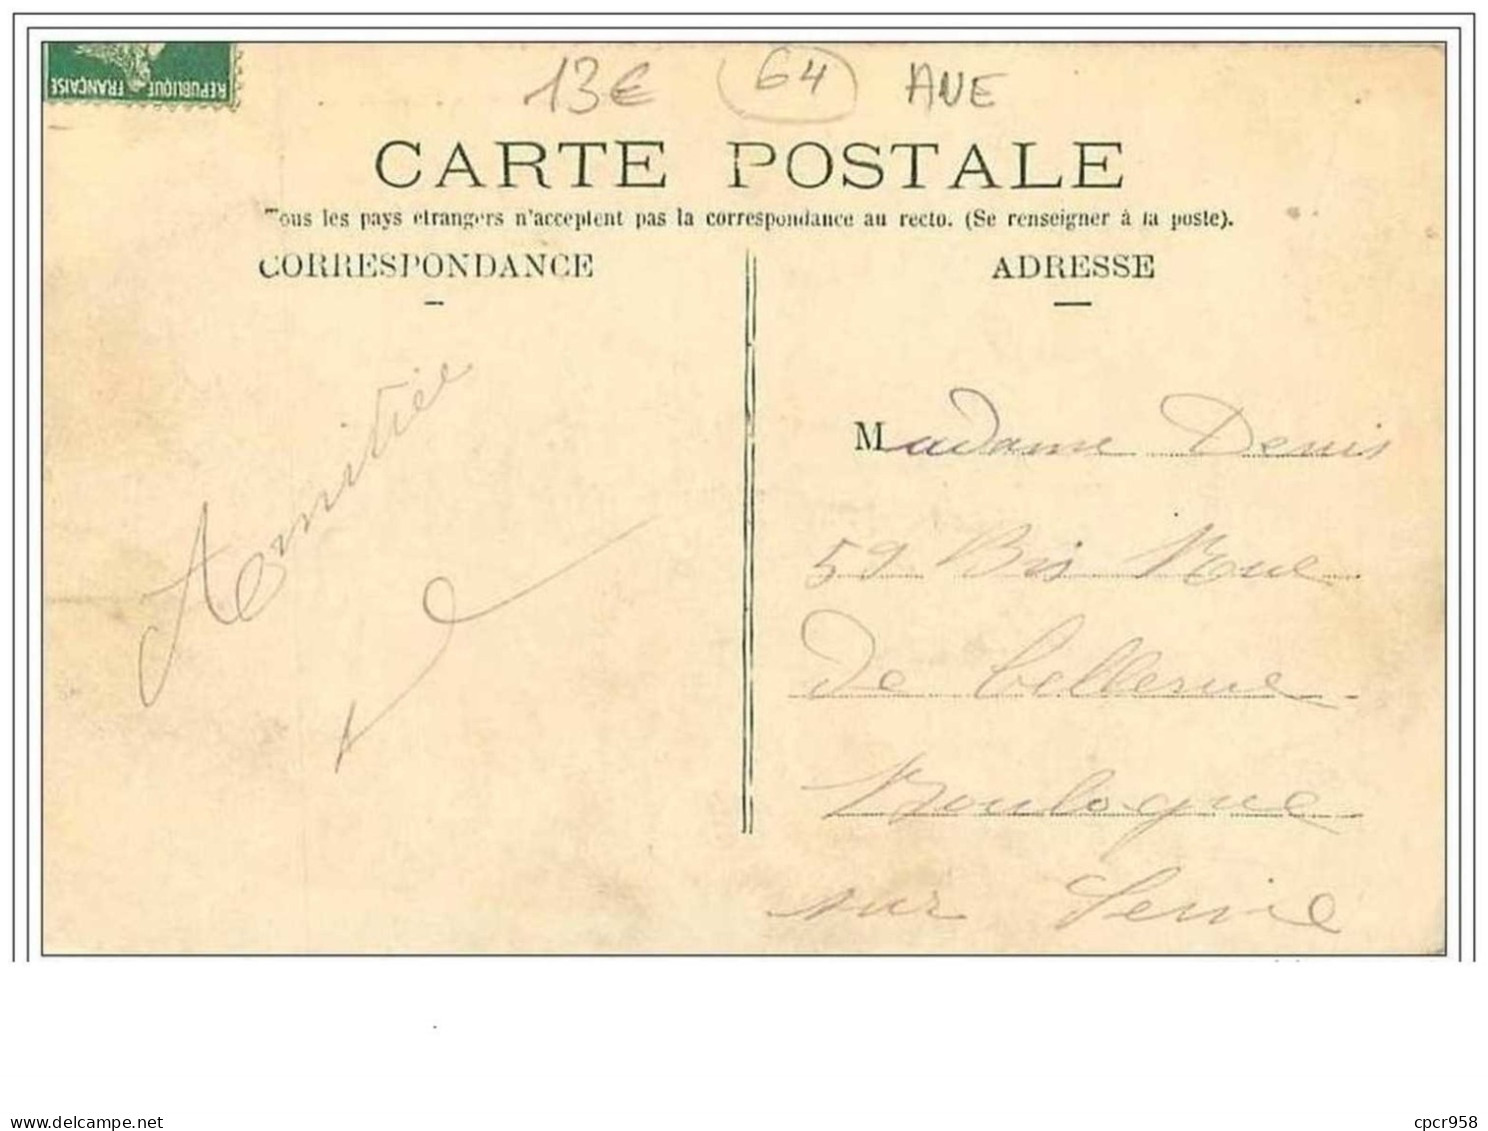 REPUBLIQUE FRANÇAISE
13€ 64 AVE
CARTE POSTALE
Tous les pays etrangers n'acceptent pas la correspondance au recto. (Se renseigner à la poste).
CORRESPONDANCE
ADRESSE
Amitiée
Madame Denis
59 Bis Rue
de bellevue
Boulogne
sur Seine
delcampe.net
cpcr958